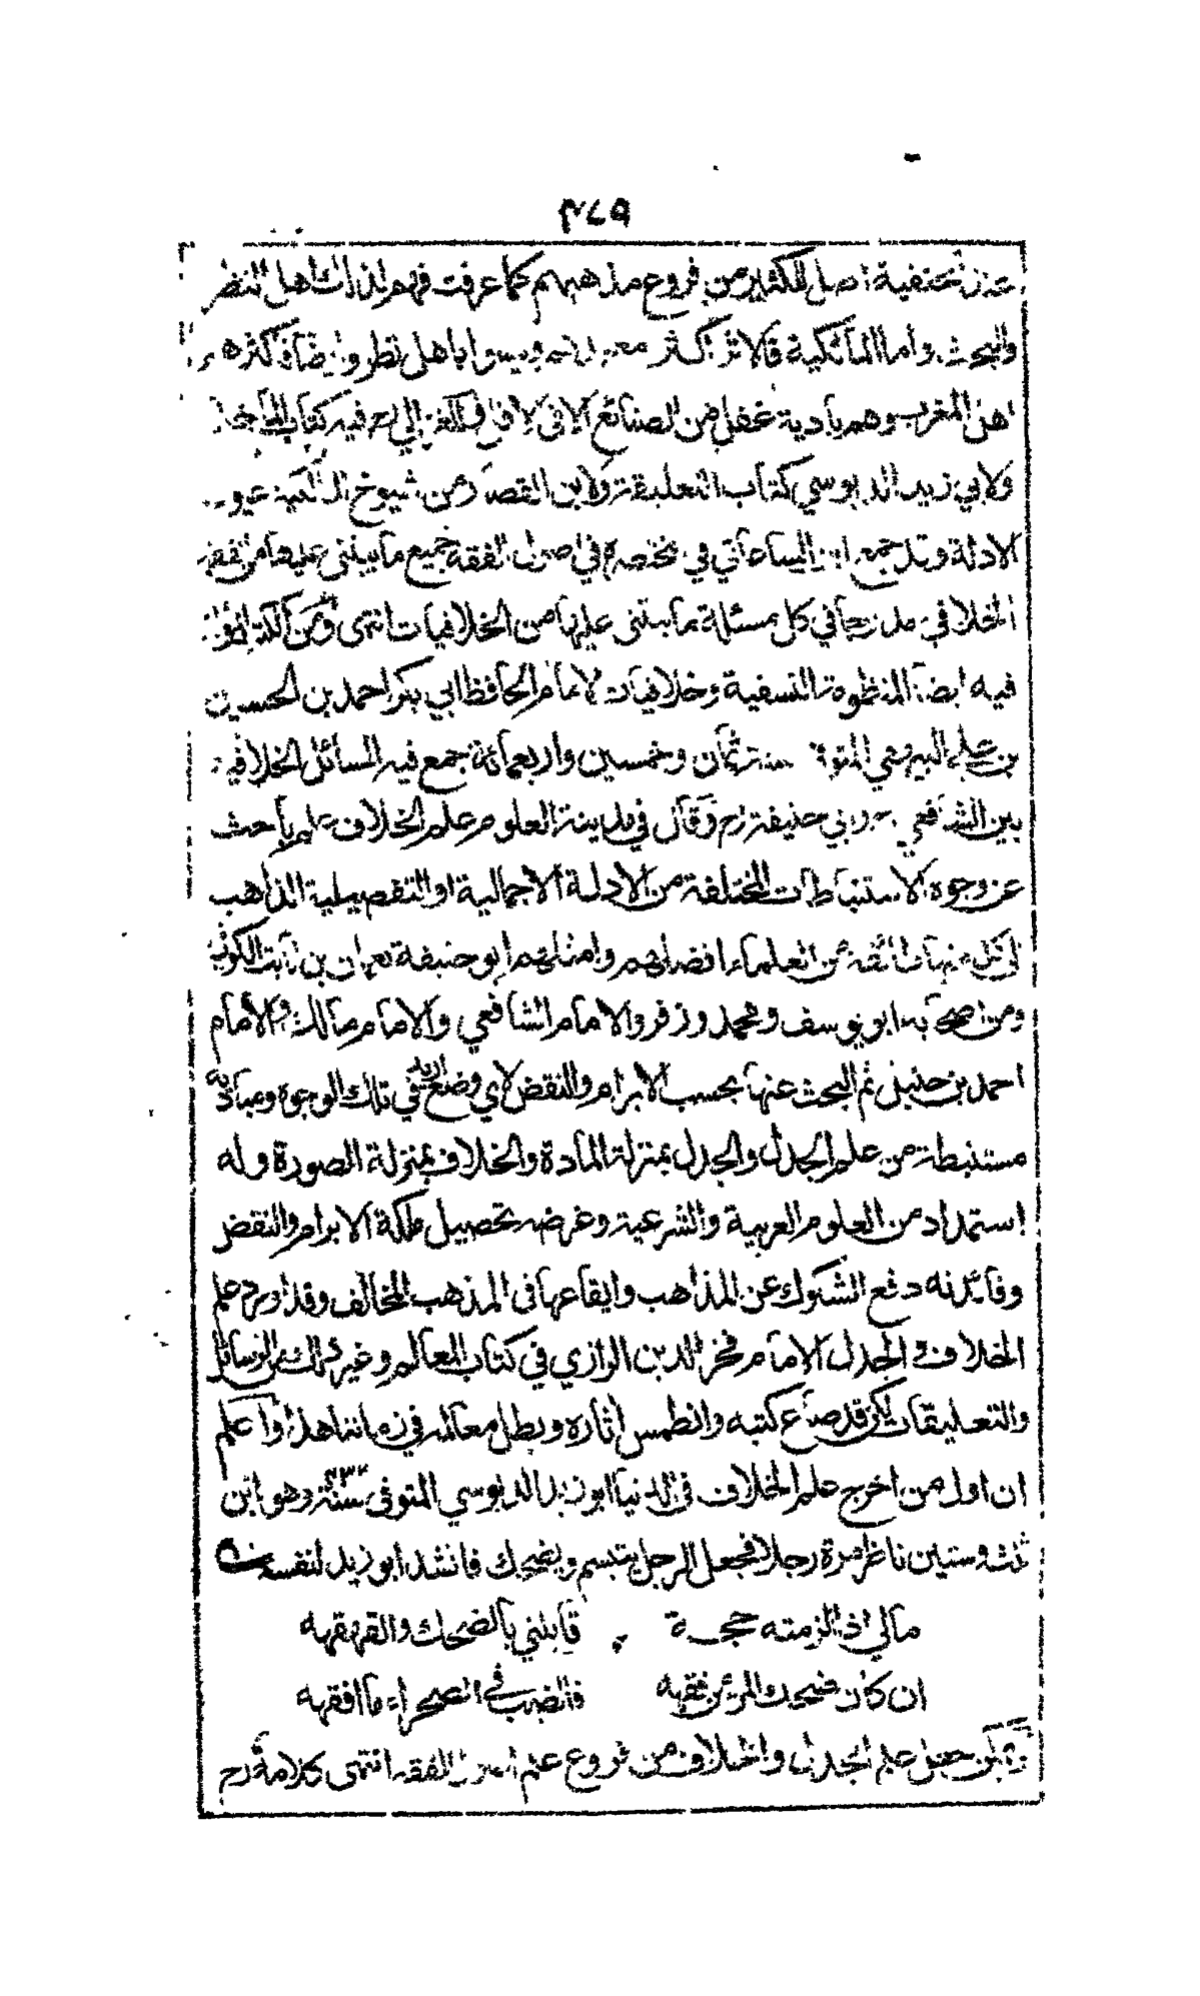 ٤٧٩
عند الحنفية اصل للكثير من فروع مذهبهم كما عرفت فهم لذلك اهل النظر
والبحث واما المالكية فالاثر اكثر معتمدهم وليسوا باهل نظر وايضا فاكثرهم
اهل المغرب وهم بادية غفل من الصنائع الا في الاقل وللغزالي رح فيه كتاب المآخذ
ولابي زيد الدبوسي كتاب التعليقة ولابن القصار من شيوخ المالكية عيون
الادلة وقد جمع ابن الساعاتي في مختصره في اصول الفقه جميع ما يبتنى عليها من الفقه
الخلافي مدرجا في كل مسئلة ما يبتنى عليها من الخلافيات انتهى ومن الكتب المؤلفة
فيه ايضا المنظومة النسفية وخلافيات الامام الحافظ ابي بكر احمد بن الحسين
بن علي البيهقي المتوفى سنة ثمان وخمسين واربعمائة جمع فيه المسائل الخلافية
بين الشافعي وابي حنيفة رح وقال في مدينة العلوم علم الخلاف علم باحث
عن وجوه الاستنباطات المختلفة من الادلة الاجمالية او التفصيلية الذاهب
الى كل منها طائفة من العلماء افضلهم وامثلهم ابو حنيفة نعمان بن ثابت الكوفي
ومن اصحابه ابو يوسف ومحمد وزفر والامام الشافعي والامام مالك والامام
احمد بن حنبل ثم البحث عنها بحسب الابرام والنقض لاي وضع اريد في تلك الوجوه ومباديه
مستنبطة من علم الجدل والجدل بمنزلة المادة والخلاف بمنزلة الصورة وله
استمداد من العلوم العربية والشرعية وغرضه تحصيل ملكة الابرام والنقض
وفائدته دفع الشكوك عن المذاهب وايقاعها في المذهب المخالف وقد اورد علم
الخلاف والجدل الامام فخر الدين الرازي في كتاب المعالم وغير ذلك من الرسائل
والتعليقات لكن قد ضاع كتبه وانطمس آثاره وبطل معالمه في زماننا هذا واعلم
ان اول من اخرج علم الخلاف في الدنيا ابو زيد الدبوسي المتوفى سنة ٤٣٢ وهو ابن
ثلث وستين ناظر مرة رجلا فجعل الرجل يتبسم ويضحك فانشد ابو زيد لنفسه
مالي اذا الزمته حجة قابلني بالضحك والقهقهة
ان كان ضحك المرء من فقهه فالضب في الصحراء ما افقهه
ويمكن جعل علم الجدل والخلاف من فروع علم اصول الفقه انتهى كلامه رح